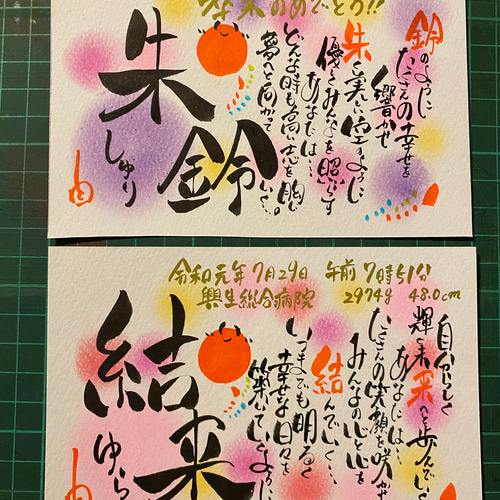 おめでとう!!
鈴のように
たくさんの幸せを
響かせ
朱く美しい空のように
優しくみんなを照らす
あなたは…
どんな時も高い志を胸に
夢へと向かっていく…
朱鈴
しゅり
令和元年7月29日 午前7時51分
興生総合病院 2974g 48.0cm
自分らしく
輝く未来へと歩んで
あなたは…
たくさんの笑顔を咲かせ
みんなの心と心を
結んでいく…
いつまでも明るく
幸せな日々を
築いていくように
結来
ゆら